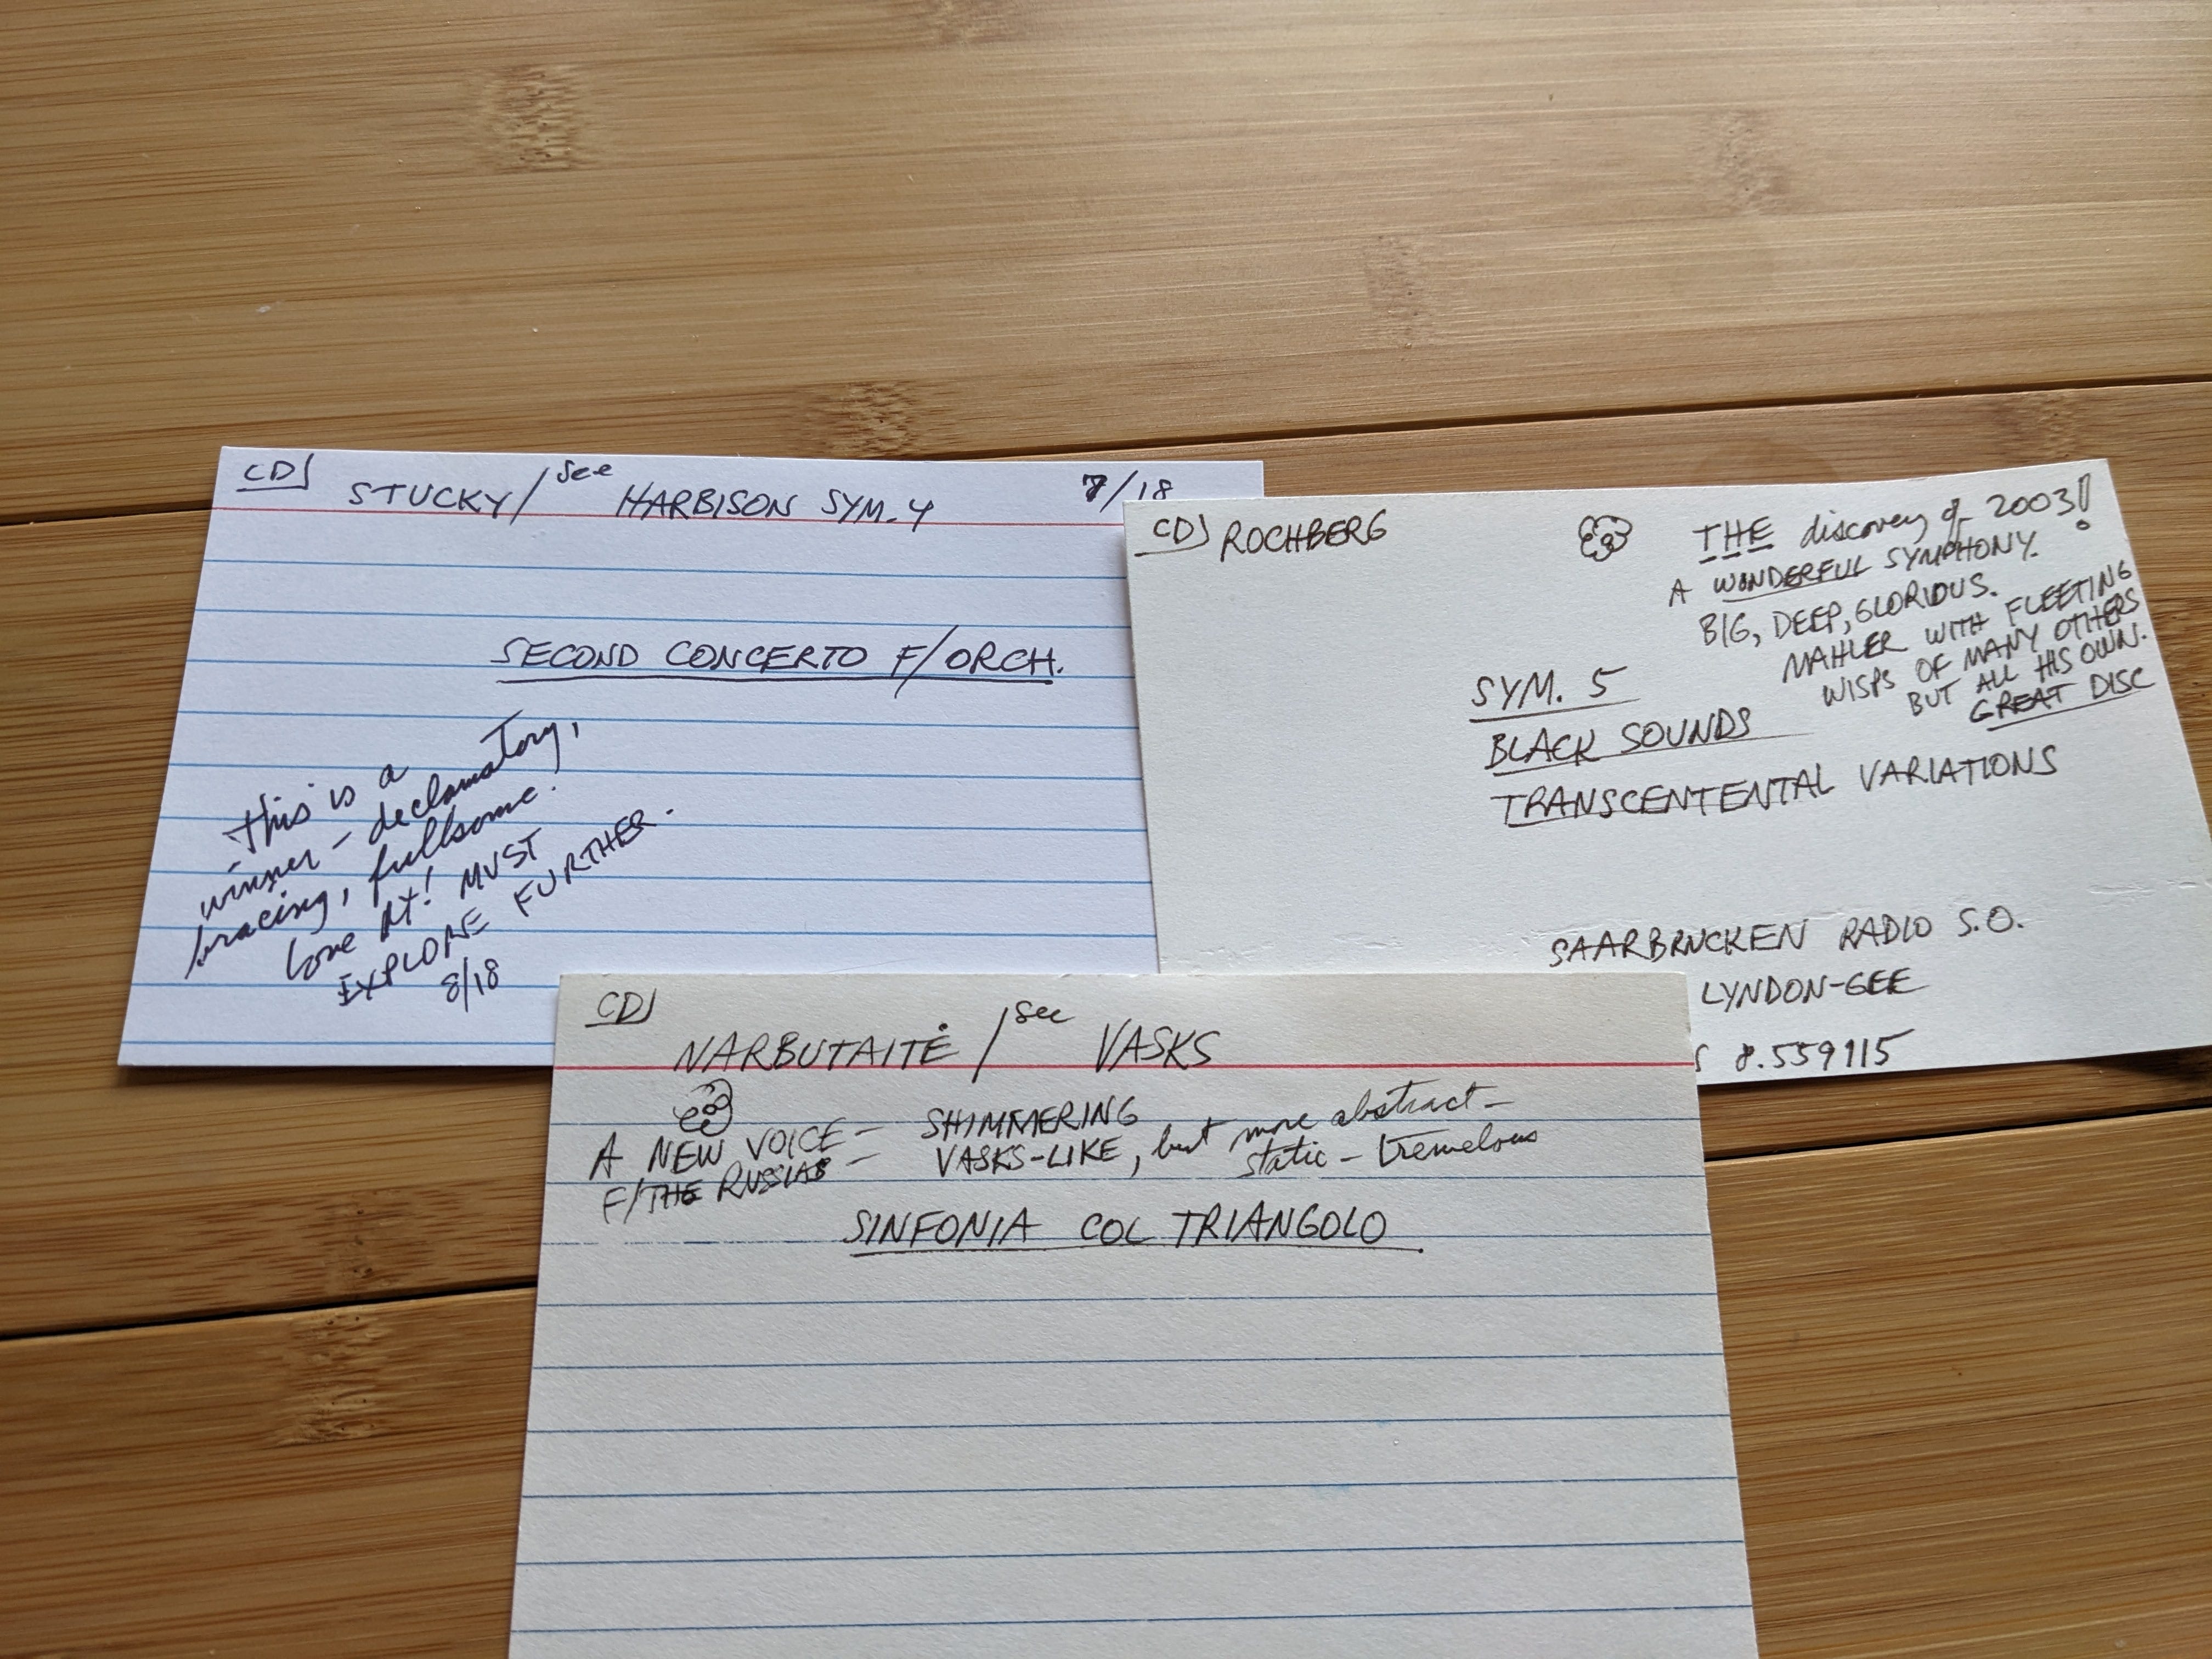 CD
STUCKY / see HARBISON SYM. 4
7/18
SECOND CONCERTO F/ORCH.
This is a
winner – declamatory,
bracing, fullsome.
Love it! MUST
EXPLORE FURTHER.
8/18
CD ROCHBERG
THE discovery of 2003!
A WONDERFUL SYMPHONY.
BIG, DEEP, GLORIOUS.
MAHLER WITH FLEETING
WISPS OF MANY OTHERS
BUT ALL HIS OWN.
GREAT DISC
SYM. 5
BLACK SOUNDS
TRANSCENTENTAL VARIATIONS
SAARBRUCKEN RADIO S.O.
LYNDON-GEE
S 8.559115
CD
NARBUTAITĖ / see VASKS
A NEW VOICE – SHIMMERING
F/THE RUSSIAS – VASKS-LIKE, but more abstract –
static – tremelous
SINFONIA COL TRIANGOLO